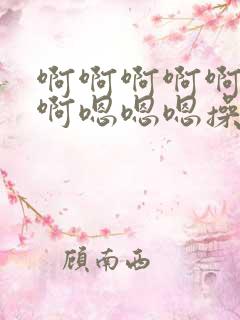 啊啊啊啊啊
啊嗯嗯嗯操
顾南西